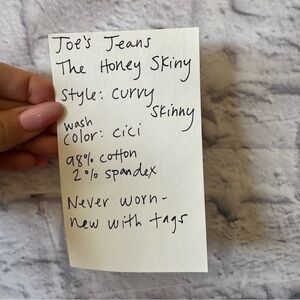 Joe's Jeans
The Honey Skiny
Style: curvy
Skinny
wash
color: cici
98% cotton
2% spandex
Never worn-
new with tags